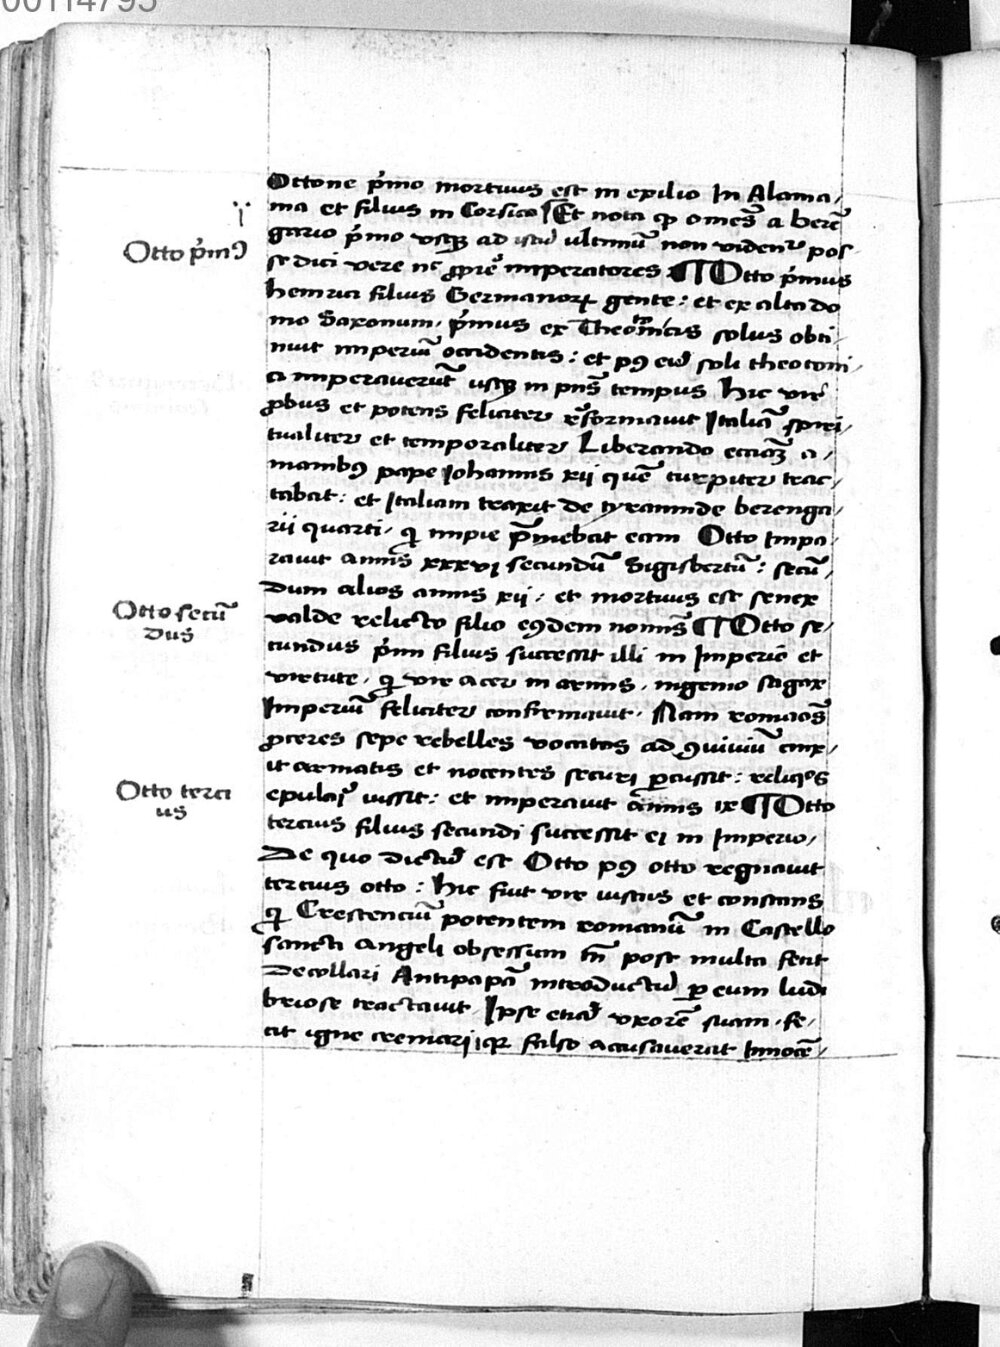 00114795
Ottone p̄mo mortuus est in exilio In Alama/
nia et filius in Corsica ¶ Et nota qꝫ omēs a berē
Otto p̄mꝰ
gario p̄mo vsqꝫ ad istud ultimū non videntʳ pos
se dici vere nc̄ ꝓprie imperatores ¶ Otto p̄mus
henrici filius Germanoꝝ gente: et ex alta do
mo Saxonum, p̄mus ex Theotonicis solus obti/
nuit imperiū occidentis: et pꝰ eū soli theotoni/
ci imperaverūt usqꝫ in pn̄s tempus Hic vir
ꝓbus et potens feliciter reformavit Italiā spiri/
tualiter et temporaliter Liberando eccliaꝫ a/
manibꝰ pape Johannis xij quē turpiter trac/
tabat: et Italiam traxit de tyrannide berenga/
rii quarti, qi impie p̄mebat eam Otto Impe/
ravit annis xxxvj secundū Sigisbertū: secū/
dum alios annis xij, et mortuus est senex
Otto secū
dus
valde relicto filio eꝰdem nominis ¶ Otto se/
cundus p̄mi filius successit illi in Imperio et
virtute, qi vir acer in armis, ingenio sagax
Imperiū feliciter confirmavit, Nam romanos
ꝓceres sepe rebelles vocatos ad ꝯuiviū cinx/
it armatis et nocentes securi ꝑcussit: reliqꝰs
Otto terci
us
epulari iussit: et imperavit annis ix ¶ Otto
tercius filius secundi successit ei in Imperio,
De quo dictū est Otto pꝰ otto regnavit
tercius otto: Hic fuit vir iustus et constans
qi Crescenciū potentem romanū in Castello
sancti Angeli obsessum tn̄ post multa fecit
Decollari Antipapā introductū ꝑ eum ludi
briose tractavit Ipse etiā vxorē suam, fe/
cit igne cremari, qꝛ falso accusaverat Innocē/